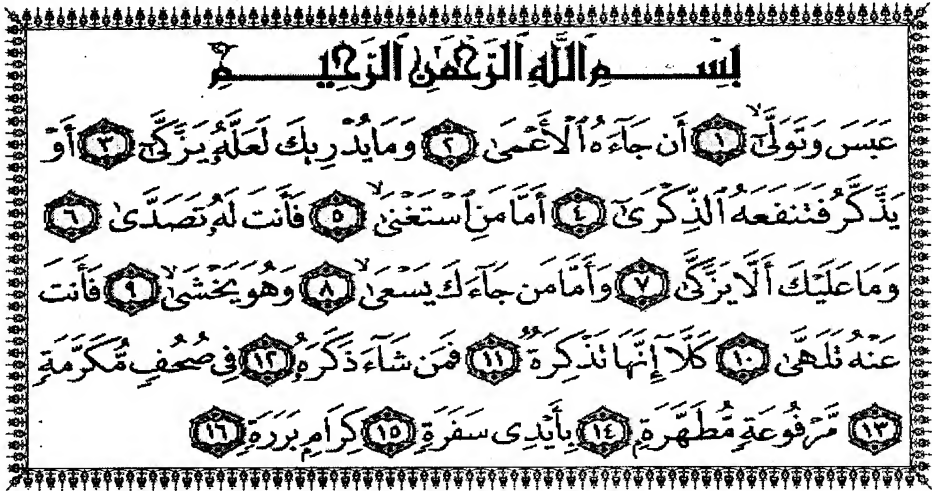 بِسْمِ ٱللَّهِ ٱلرَّحْمَٰنِ ٱلرَّحِيمِ
عَبَسَ وَتَوَلَّىٰٓ ۙ ﴿١﴾ أَن جَآءَهُ ٱلْأَعْمَىٰ ﴿٢﴾ وَمَا يُدْرِيكَ لَعَلَّهُۥ يَزَّكَّىٰٓ ﴿٣﴾ أَوْ
يَذَّكَّرُ فَتَنفَعَهُ ٱلذِّكْرَىٰٓ ﴿٤﴾ أَمَّا مَنِ ٱسْتَغْنَىٰ ۙ ﴿٥﴾ فَأَنتَ لَهُۥ تَصَدَّىٰ ﴿٦﴾
وَمَا عَلَيْكَ أَلَّا يَزَّكَّىٰ ﴿٧﴾ وَأَمَّا مَن جَآءَكَ يَسْعَىٰ ۙ ﴿٨﴾ وَهُوَ يَخْشَىٰ ۙ ﴿٩﴾ فَأَنتَ
عَنْهُ تَلَهَّىٰ ﴿١٠﴾ كَلَّآ إِنَّهَا تَذْكِرَةٌ ﴿١١﴾ فَمَن شَآءَ ذَكَرَهُۥ ﴿١٢﴾ فِى صُحُفٍ مُّكَرَّمَةٍ
﴿١٣﴾ مَّرْفُوعَةٍ مُّطَهَّرَةٍۭ ﴿١٤﴾ بِأَيْدِى سَفَرَةٍ ﴿١٥﴾ كِرَامٍۭ بَرَرَةٍ ﴿١٦﴾